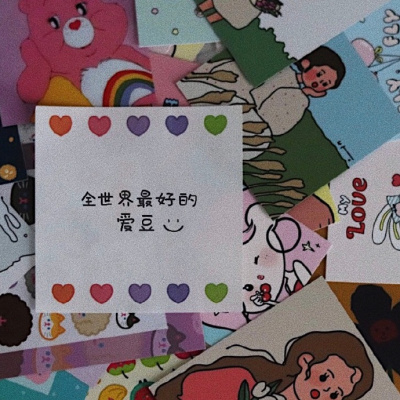 全世界最好的
爱豆
MY
LOVE
FLY